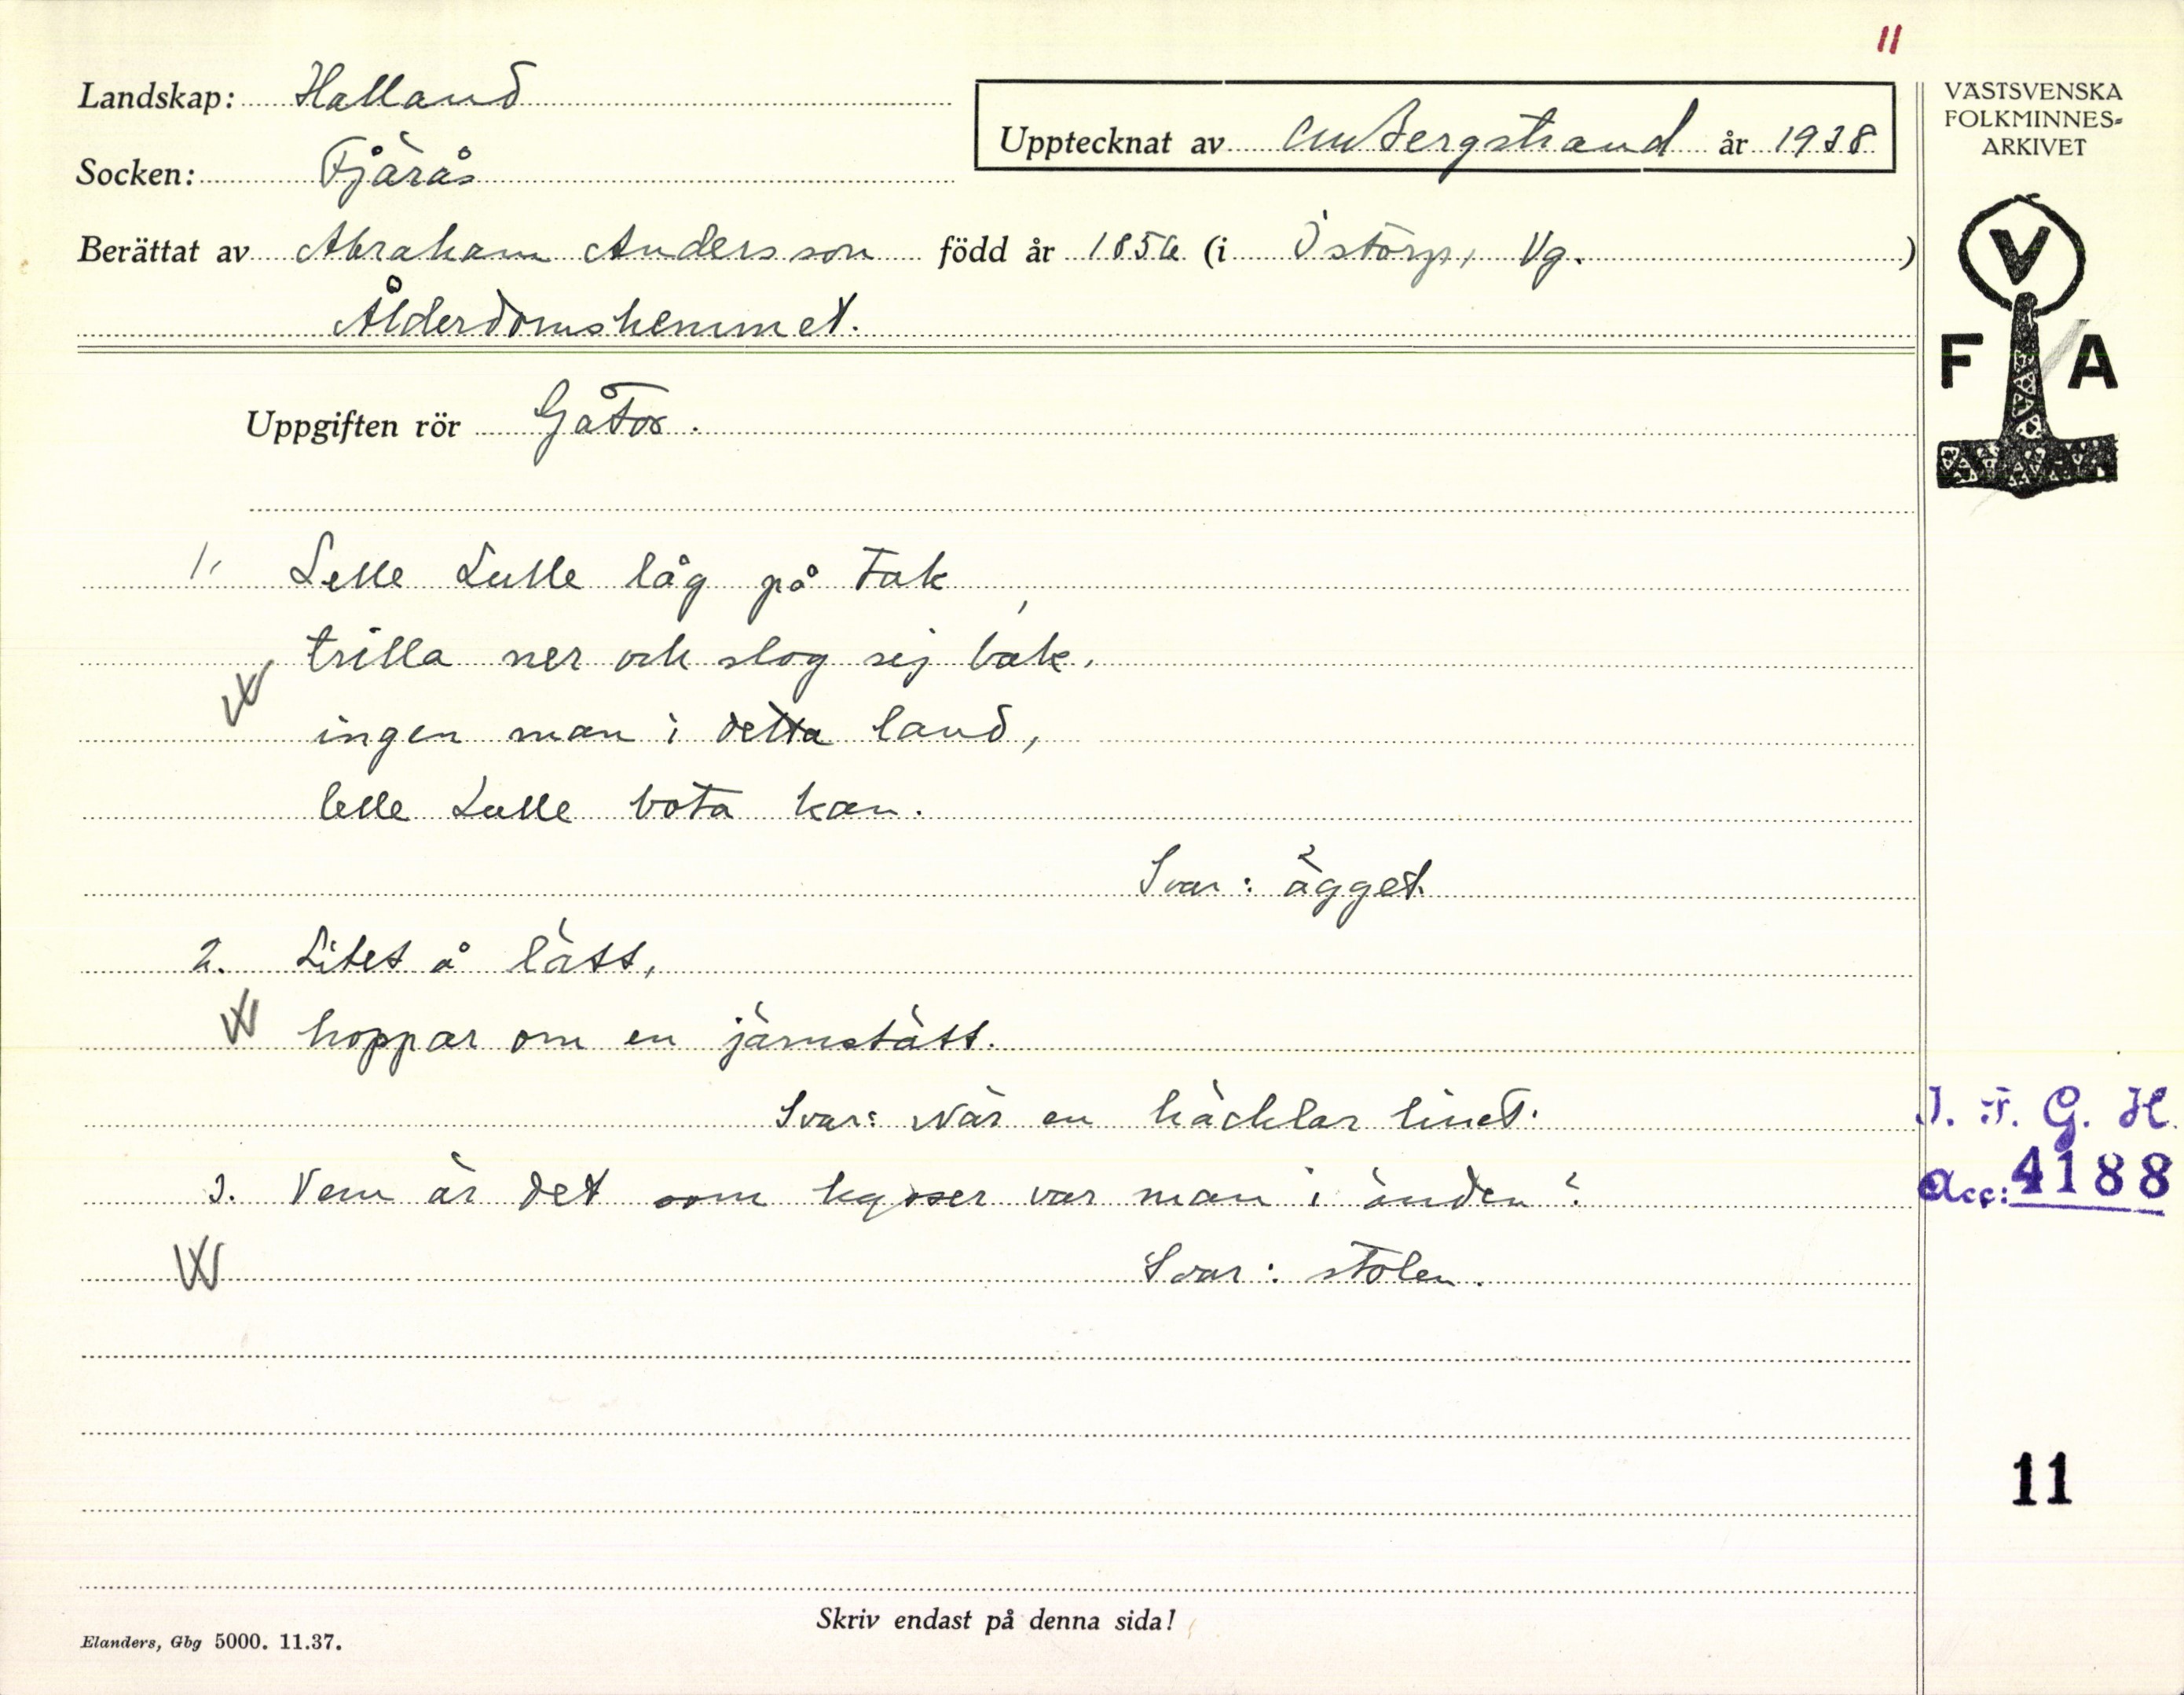 11
Landskap: Halland
Upptecknat av C.M. Bergstrand år 1938
Socken: Fjärås
Berättat av Abraham Andersson född år 1856 (i Östorp, Vg.)
Ålderdomshemmet.
VÄSTSVENSKA
FOLKMINNES-
ARKIVET
V
F A
Uppgiften rör Gåtor.
1. Lelle Lulle låg på tak,
trilla ner och slog sej bak,
ingen man i detta land,
lelle Lulle bota kan.
Svar: ägget.
2. Litet å lätt,
hoppar om en järnstätt.
Svar: När en häcklar linet.
3. Vem är det som kysser var man i änden?
Svar: stolen.
I. F. G. H.
Acc: 4188
11
Skriv endast på denna sida!
Elanders, Gbg 5000. 11.37.